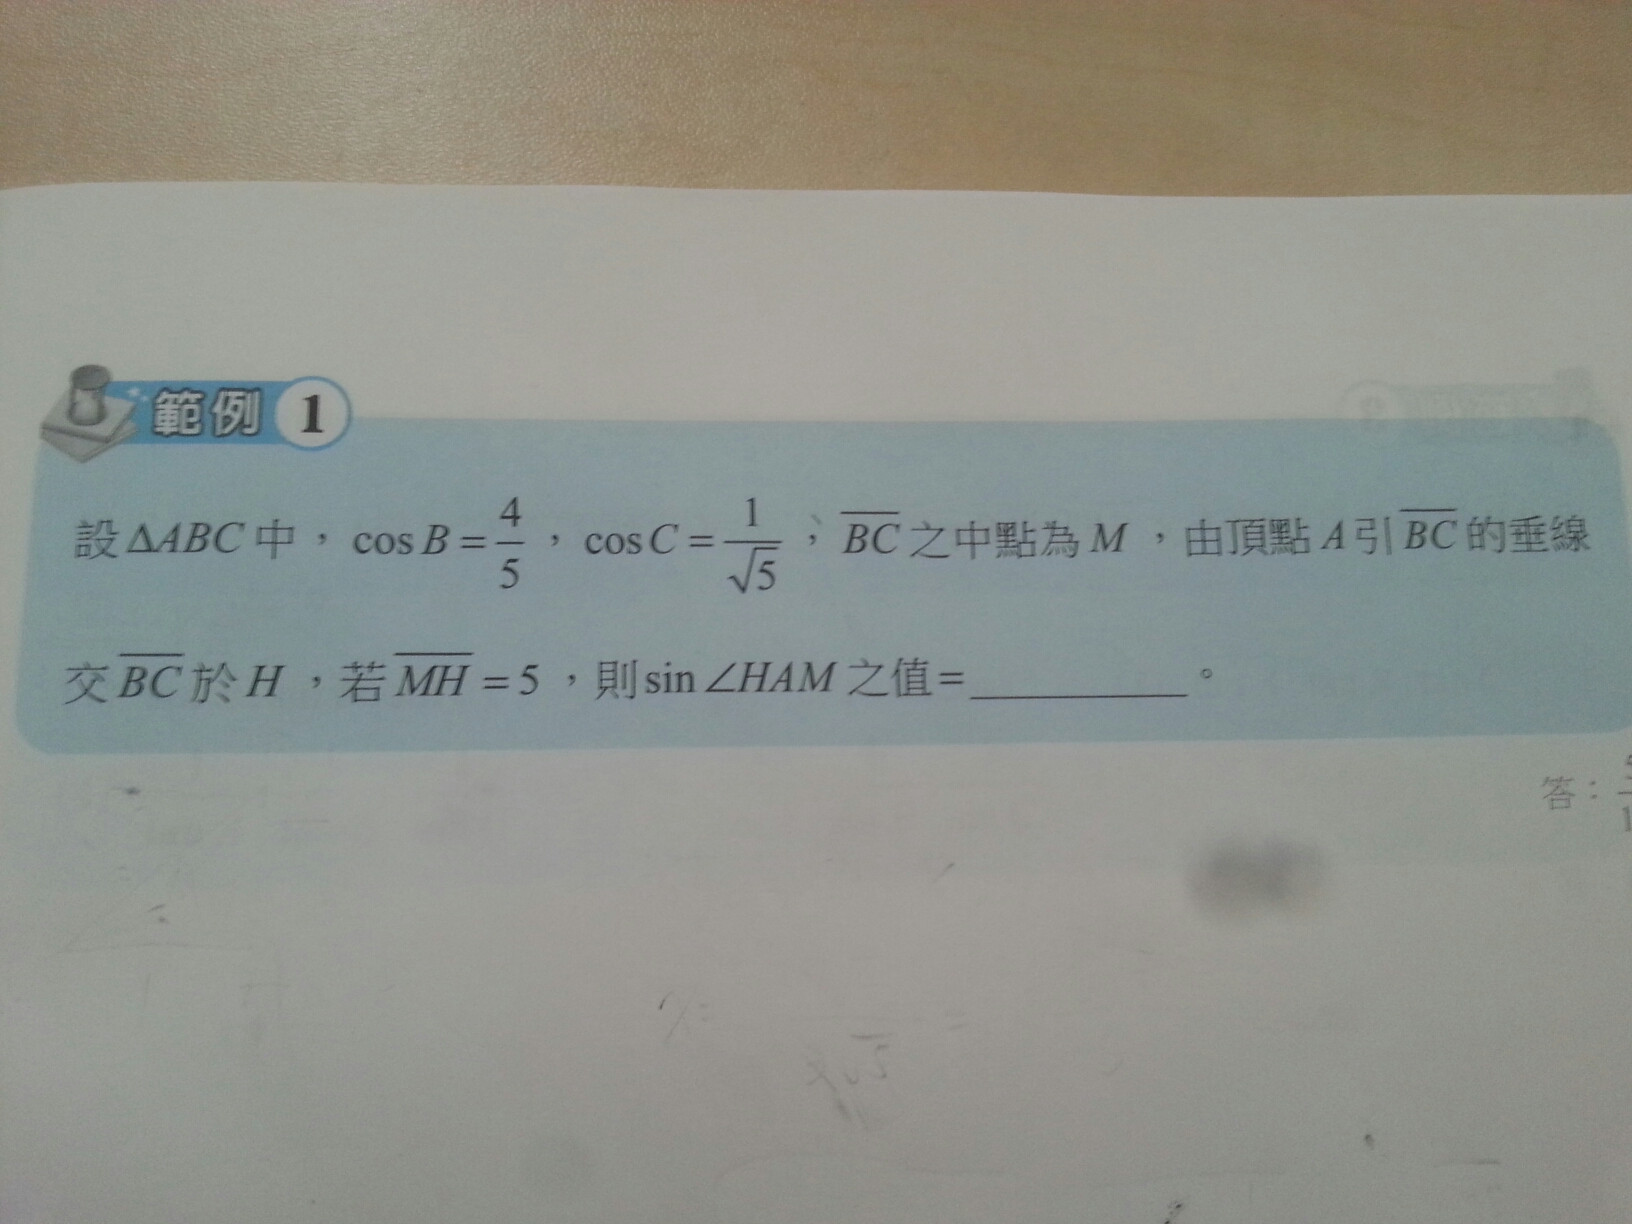 範例 1
設ΔABC中，cos B = 4/5，cos C = 1/√5，BC之中點為M，由頂點A引BC的垂線
交BC於H，若MH = 5，則sin∠HAM之值=__________。
答：